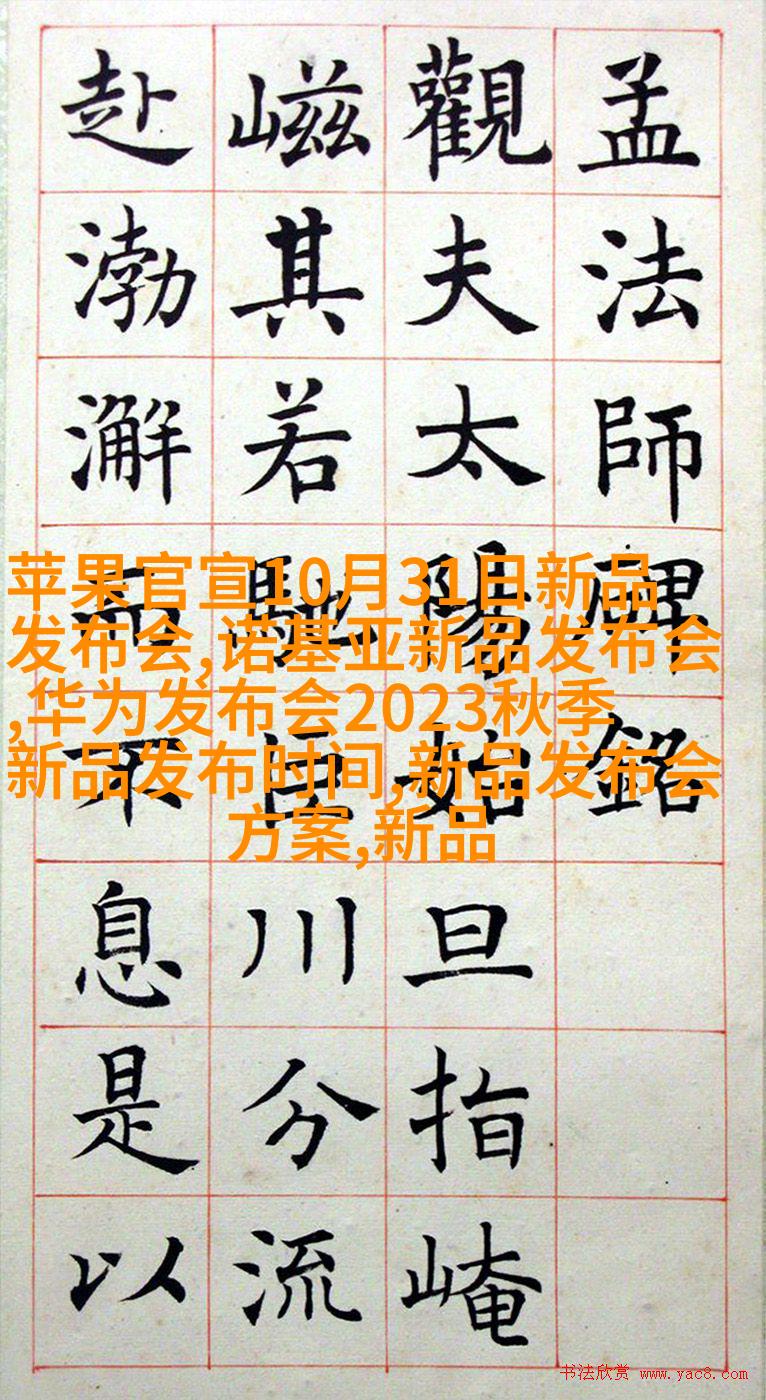 孟法師碑銘
觀夫太陽始旦指崦
嵫其若馳巨川分流
赴渤澥而不息是以
苹果官宣10月31日新品
发布会,诺基亚新品发布会
,华为发布会2023秋季
新品发布时间,新品发布会
方案,新品
书法欣赏 www.yac8.com